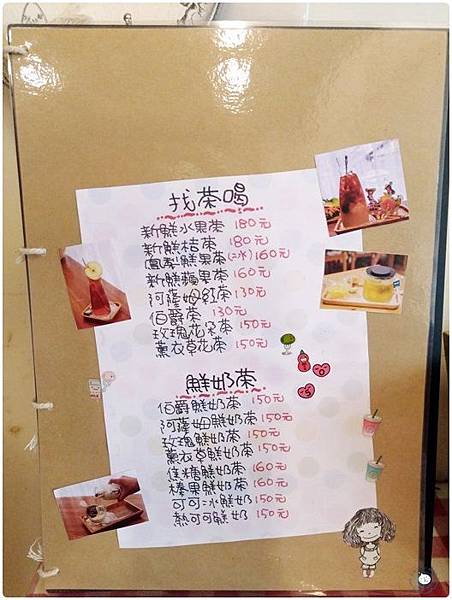 找茶喝
新鮮水果茶 180元
新鮮桔茶 180元
鳳梨鮮果茶(冰)160元
新鮮蘋果茶 160元
阿薩姆紅茶 130元
伯爵茶 130元
玫瑰花朵茶 150元
薰衣草花茶 150元
鮮奶茶
伯爵鮮奶茶 150元
阿薩姆鮮奶茶 150元
玫瑰鮮奶茶 150元
薰衣草鮮奶茶 150元
焦糖鮮奶茶 160元
榛果鮮奶茶 160元
可可冰鮮奶 150元
熱可可鮮奶 150元